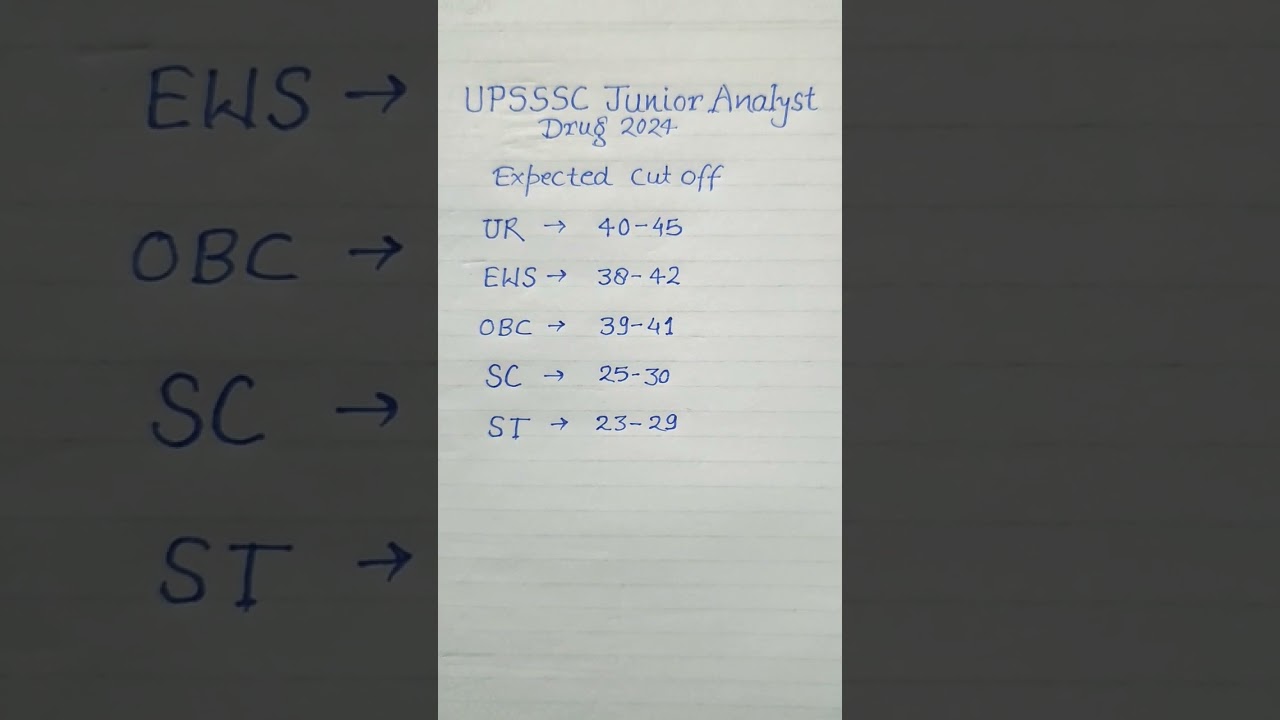 UPSSSC Junior Analyst
Drug 2024
Expected cut off
UR → 40-45
EWS → 38-42
OBC → 39-41
SC → 25-30
ST → 23-29
EWS →
OBC →
SC →
ST →